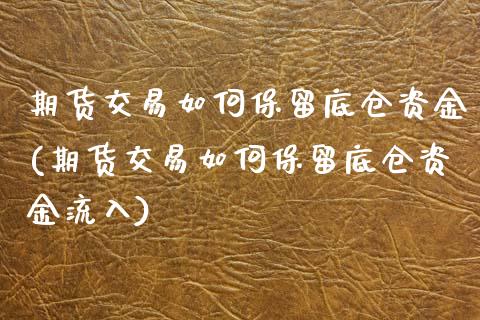 期货交易如何保留底仓资金
(期货交易如何保留底仓资
金流入)